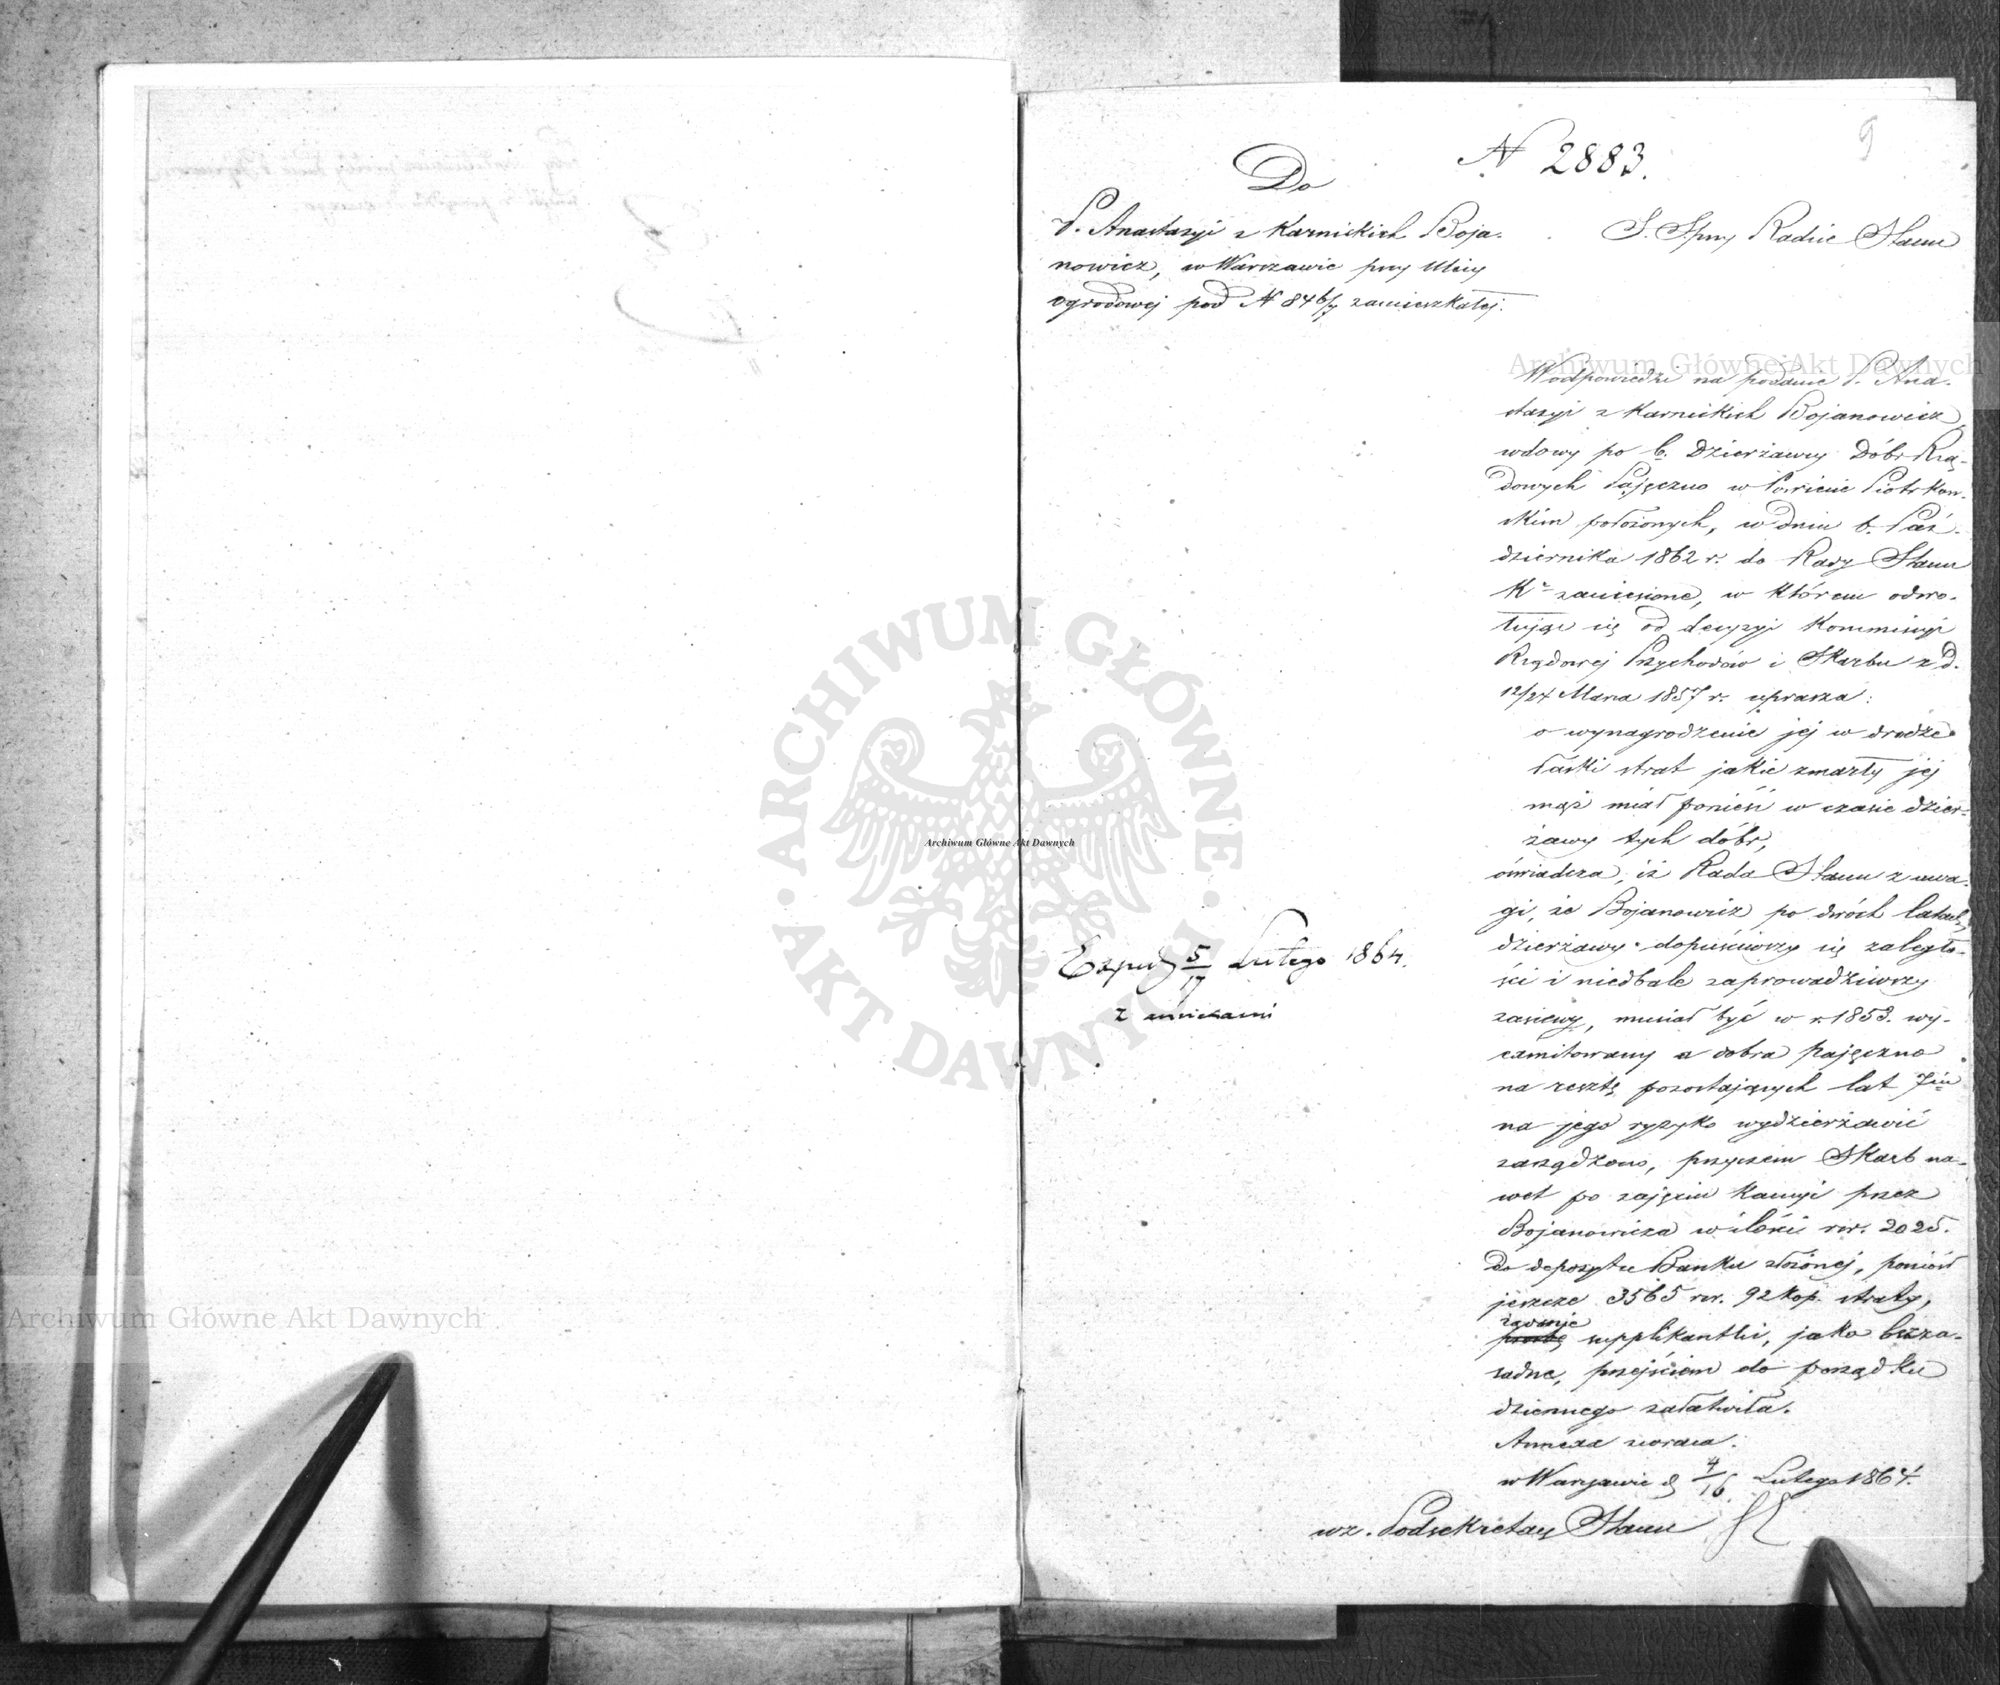 9
N 2883.
Do
P. Anastazyi z Karnickich Boja-
nowicz, w Warszawie przy Ulicy
Ogrodowej pod N 846/7 zamieszkałej.
S. Sprzy Radzie Stanu
W odpowiedzi na podanie P. Ana-
stazyi z Karnickich Bojanowicz,
wdowy po b. Dzierżawcy Dóbr Rzą-
dowych Pajęczno w Powiecie Piotrkow-
skim położonych, w dniu 6. Paź-
dziernika 1862 r. do Rady Stanu
Kr. zaniesione, w którem odwo-
łując się od decyzyi Kommissyi
Rządowej Przychodów i Skarbu z d.
12/24 Marca 1857 r. uprasza:
o wynagrodzenie jej w drodze
łaski strat jakie zmarły jej
mąż miał ponieść w czasie dzier-
żawy tych dóbr,
oświadcza, iż Rada Stanu z uwa-
gi, że Bojanowicz po dwóch latach
dzierżawy dopuściwszy się zaległo-
ści i niedbale zaprowadziwszy
zasiewy, musiał być w r. 1853. wy-
exmitowany a dobra Pajęczno
na resztę pozostających lat 7iu
na jego ryzyko wydzierżawić
zarządzono, przyczem Skarb na-
wet po zajęciu Kaucyi przez
Bojanowicza w ilości rsr. 2025.
do depozytu Banku złożonej, poniósł
jeszcze 3565 rsr. 92 kop. straty,
żądanie
prośbę supplikantki, jako bezza-
sadne, przejściem do porządku
dziennego załatwiła.
Annexa zwraca.
w Warszawie d 4/16 Lutego 1864.
wz. Podsekretarz Stanu
Exped 5/17 Lutego 1864.
Archiwum Główne Akt Dawnych
Archiwum Główne Akt Dawnych
Archiwum Główne Akt Dawnych
ARCHIWUM GŁÓWNE AKT DAWNYCH